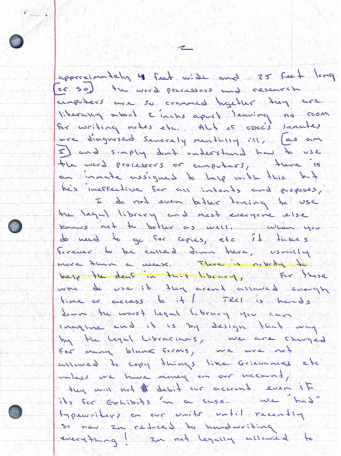 2
approximately 4 feet wide and 25 feet long
(or so) the word processors and research
computers are so crammed together they are
literally about 2 inchs apart leaving no room
for writing notes etc. Alot of ODOC's inmates
are diagnosed severely mentally ill, (as am
I) and simply dont understand how to use
the word processors or computers, there is
an inmate assigned to help with this but
he's ineffective for all intents and purposes,
I do not even bother trying to use
the legal library and most everyone else
knows not to bother as well. when you
do need to go for copies, etc it takes
forever to be called down there, usually
more than a week. There is nobody to
help the deaf in this library, For those
who do use it they arent allowed enough
time or access to it! TRCI is hands
down the worst legal library you can
imagine and it is by design that way
by the legal librarians, we are charged
for many blank forms, we are not
allowed to copy things like Grievances etc
unless we have money on our account,
they will not debit our account even if
its for Exhibits in a case. we "had"
typewriters on our units until recently
so now Im reduced to handwriting
everything! Im not legally allowed to